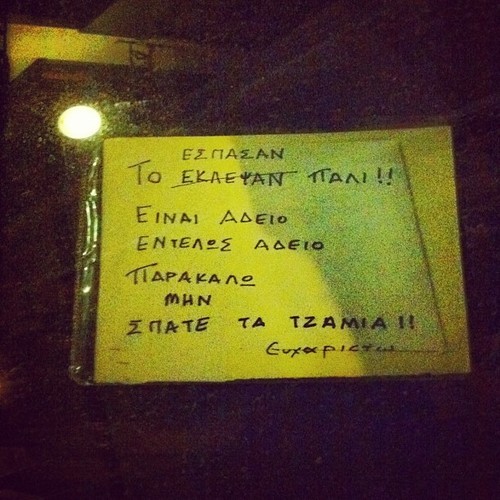 ΕΣΠΑΣΑΝ
ΤΟ ΕΚΛΕΨΑΝ ΠΑΛΙ!!
ΕΙΝΑΙ ΑΔΕΙΟ
ΕΝΤΕΛΩΣ ΑΔΕΙΟ
ΠΑΡΑΚΑΛΩ
ΜΗΝ
ΣΠΑΤΕ ΤΑ ΤΖΑΜΙΑ!!
Ευχαριστω